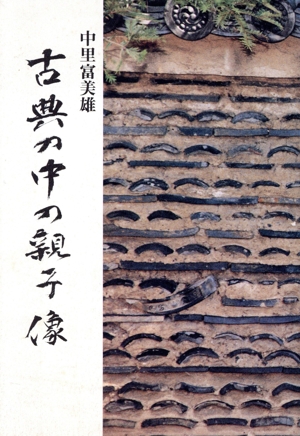 中里富美雄
古典の中の親子像